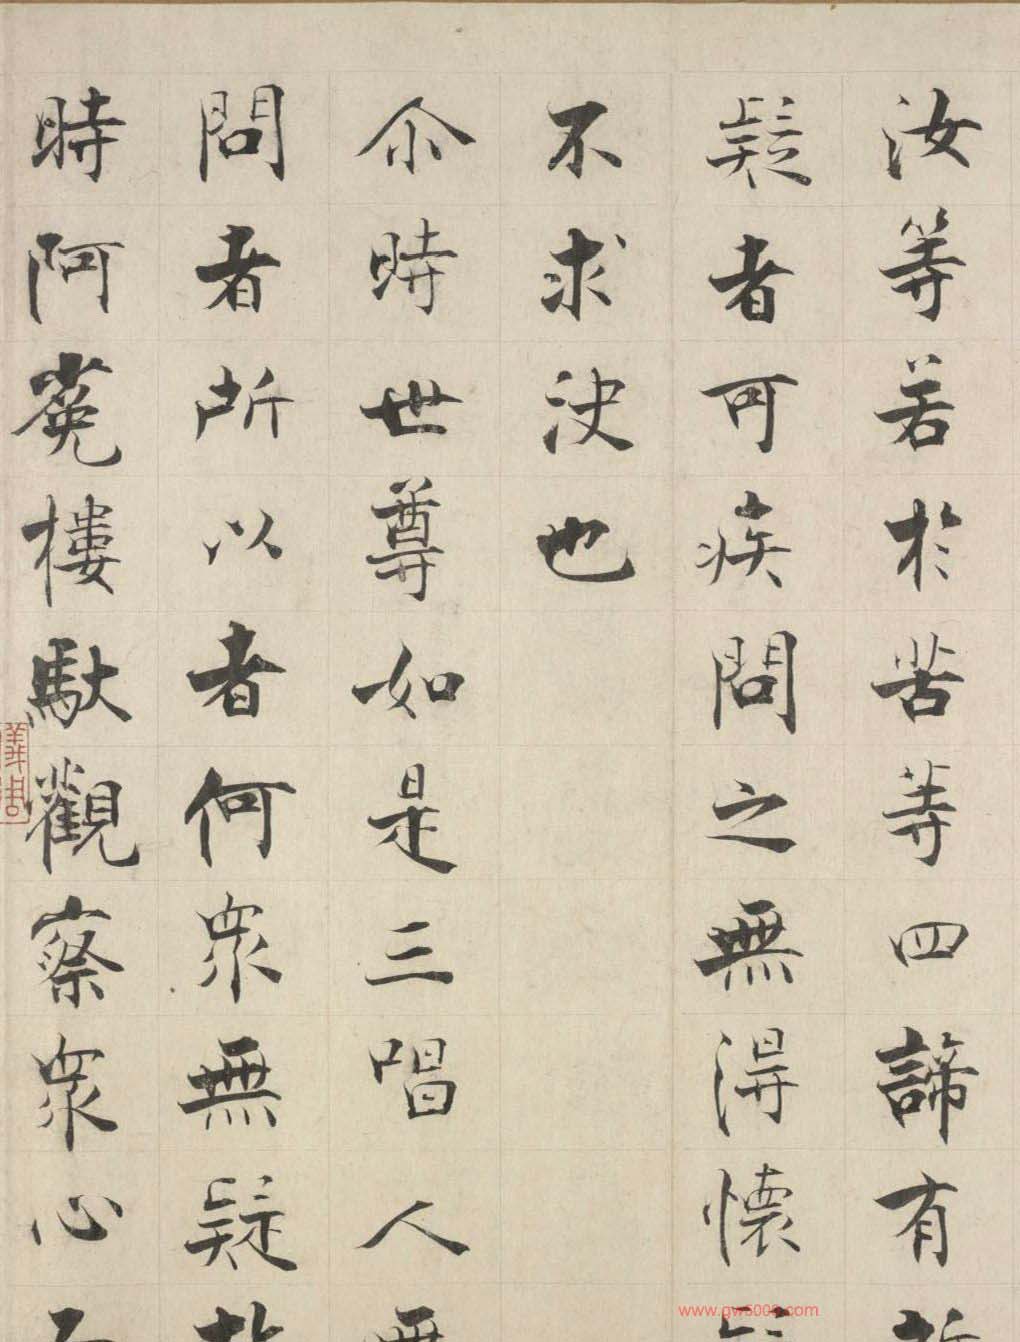 汝等若於苦等四諦有所
疑者可疾問之無得懷疑
不求決也
尒時世尊如是三唱人無
問者所以者何眾無疑故
時阿㝹樓馱觀察眾心而
www.gw5000.com